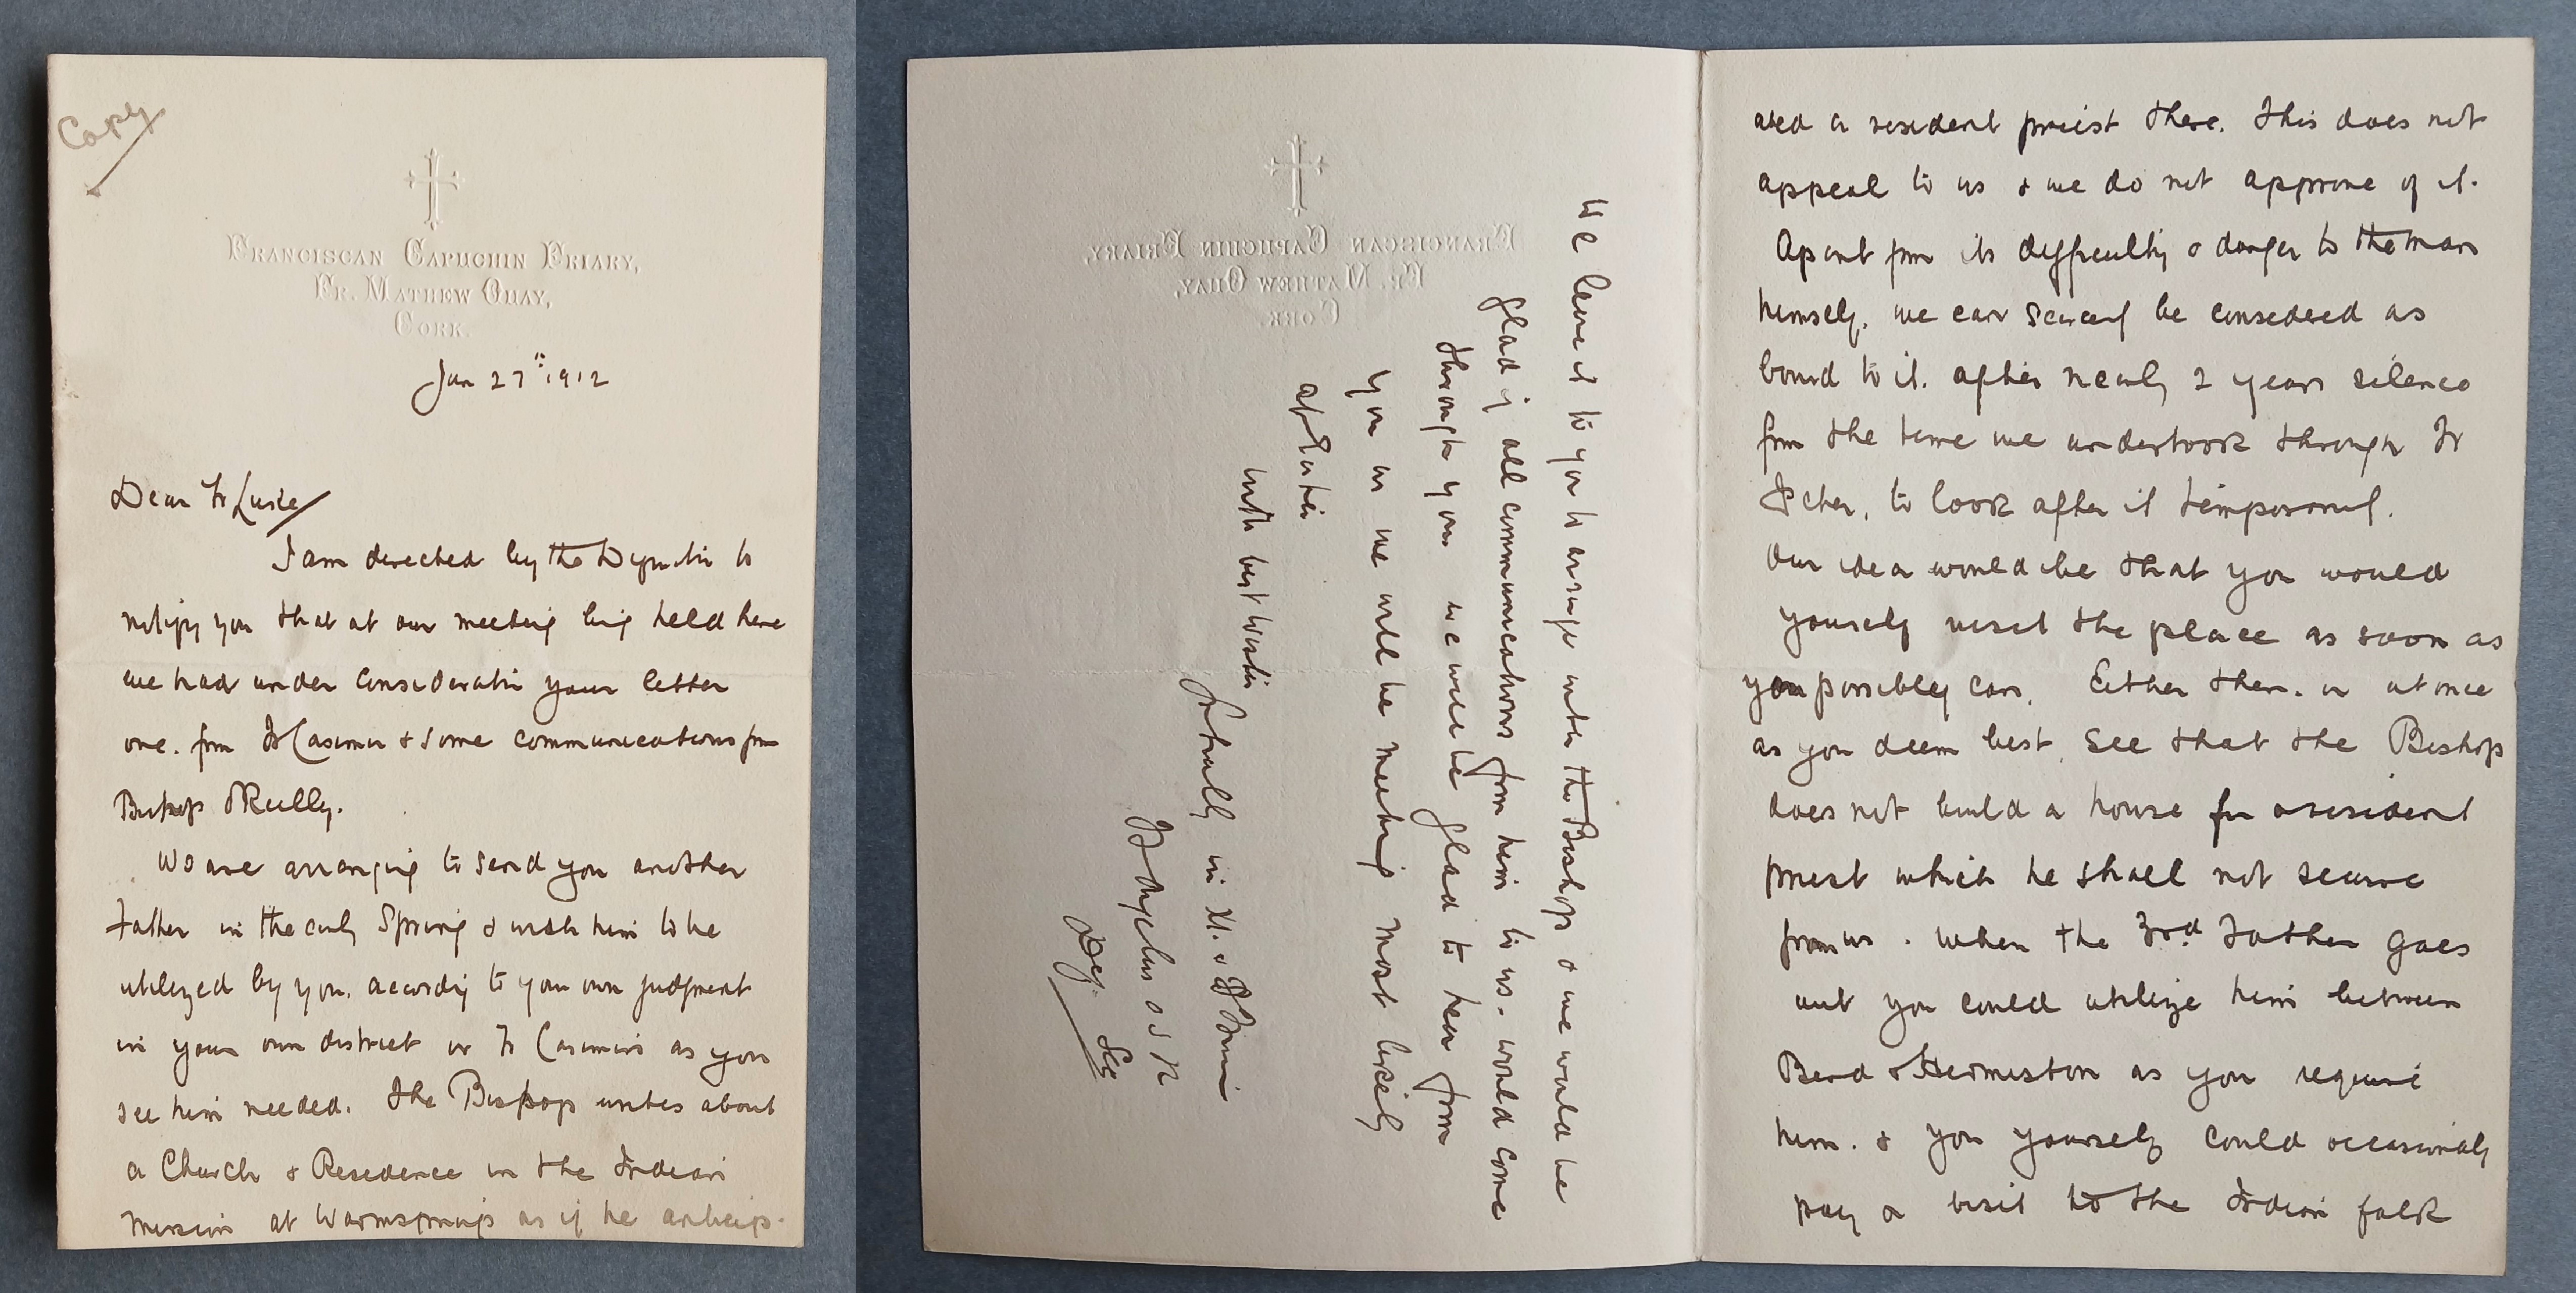 Copy
FRANCISCAN CAPUCHIN FRIARY,
FR. MATHEW QUAY,
CORK.
Jan 27th 1912
Dear Fr Luke/
I am directed by the Definitn to
notify you that at our meeting being held here
we had under consideratn your letter
one. from Fr Casimir & some communications from
Bishop O'Reilly.
We are arranging to send you another
Father in the early Spring & wish him to be
utilized by you. according to your own judgment
in your own district or Fr Casimirs as you
see him needed. The Bishop writes about
a Church & Residence in the Indian
Mission at Warmsprings as if he anticip-
ated a resident priest there. This does not
appeal to us & we do not approve of it.
Apart from its difficulty & danger to the man
himself, we can scarcely be considered as
bound to it. after nearly 2 years silence
from the time we undertook through Fr
Peter, to look after it temporarily.
Our idea would be that you would
yourself visit the place as soon as
you possibly can. Either then. or at once
as you deem best, see that the Bishop
does not build a house for a resident
priest which he shall not secure
from us. When the 3rd Father goes
out you could utilize him between
Bend & Hermiston as you require
him. & you yourself could occasionally
pay a visit to the Indian folk
We leave it to you to arrange with the Bishop & we would be
glad if all communications from him to us - would come
through you we will be glad to hear from
you as we will be meeting most likely
at Easter
With best wishes
Fratnally in Xt. & St Francis
Fr Angelus OSFC
Def. Sec